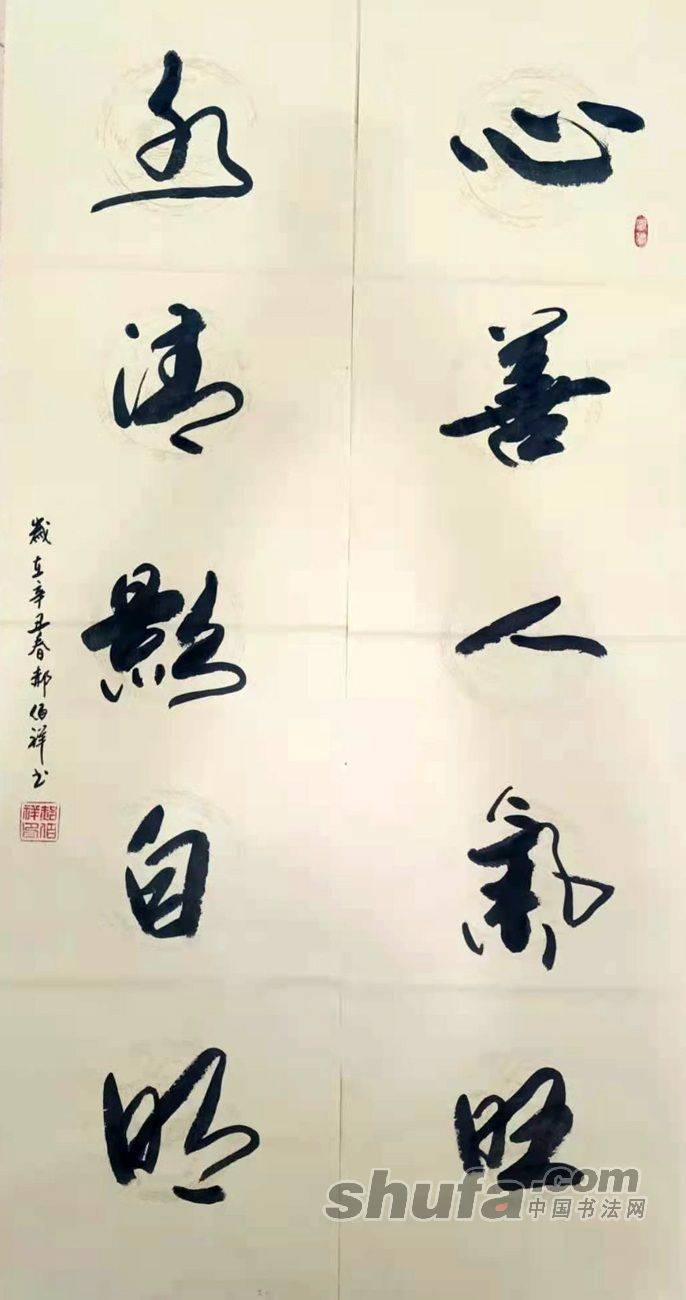 心善人氣旺
水清影自明
歲在辛丑春郝伯祥书
郝伯祥印
shufa.com
中国书法网